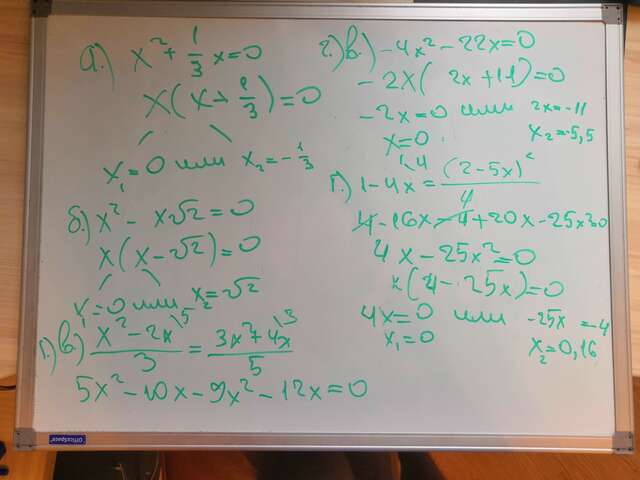 а.) x² + 1/3 x = 0
x(x + 1/3) = 0
x₁ = 0 или x₂ = -1/3
б.) x² - x√2 = 0
x(x - √2) = 0
x₁ = 0 или x₂ = √2
1.) в.) x² - 2x\5 / 3 = 3x² + 4x\3 / 5
5x² - 10x - 9x² - 12x = 0
2.) в.) -4x² - 22x = 0
-2x(2x + 11) = 0
-2x = 0 или 2x = -11
x = 0 x₂ = -5,5
г.) 1 - 4x\4 = (2 - 5x)² / 4
4 - 16x - 4 + 20x - 25x² = 0
4x - 25x² = 0
x(4 - 25x) = 0
4x = 0 или -25x = -4
x₁ = 0 x₂ = 0,16
OfficeSpace